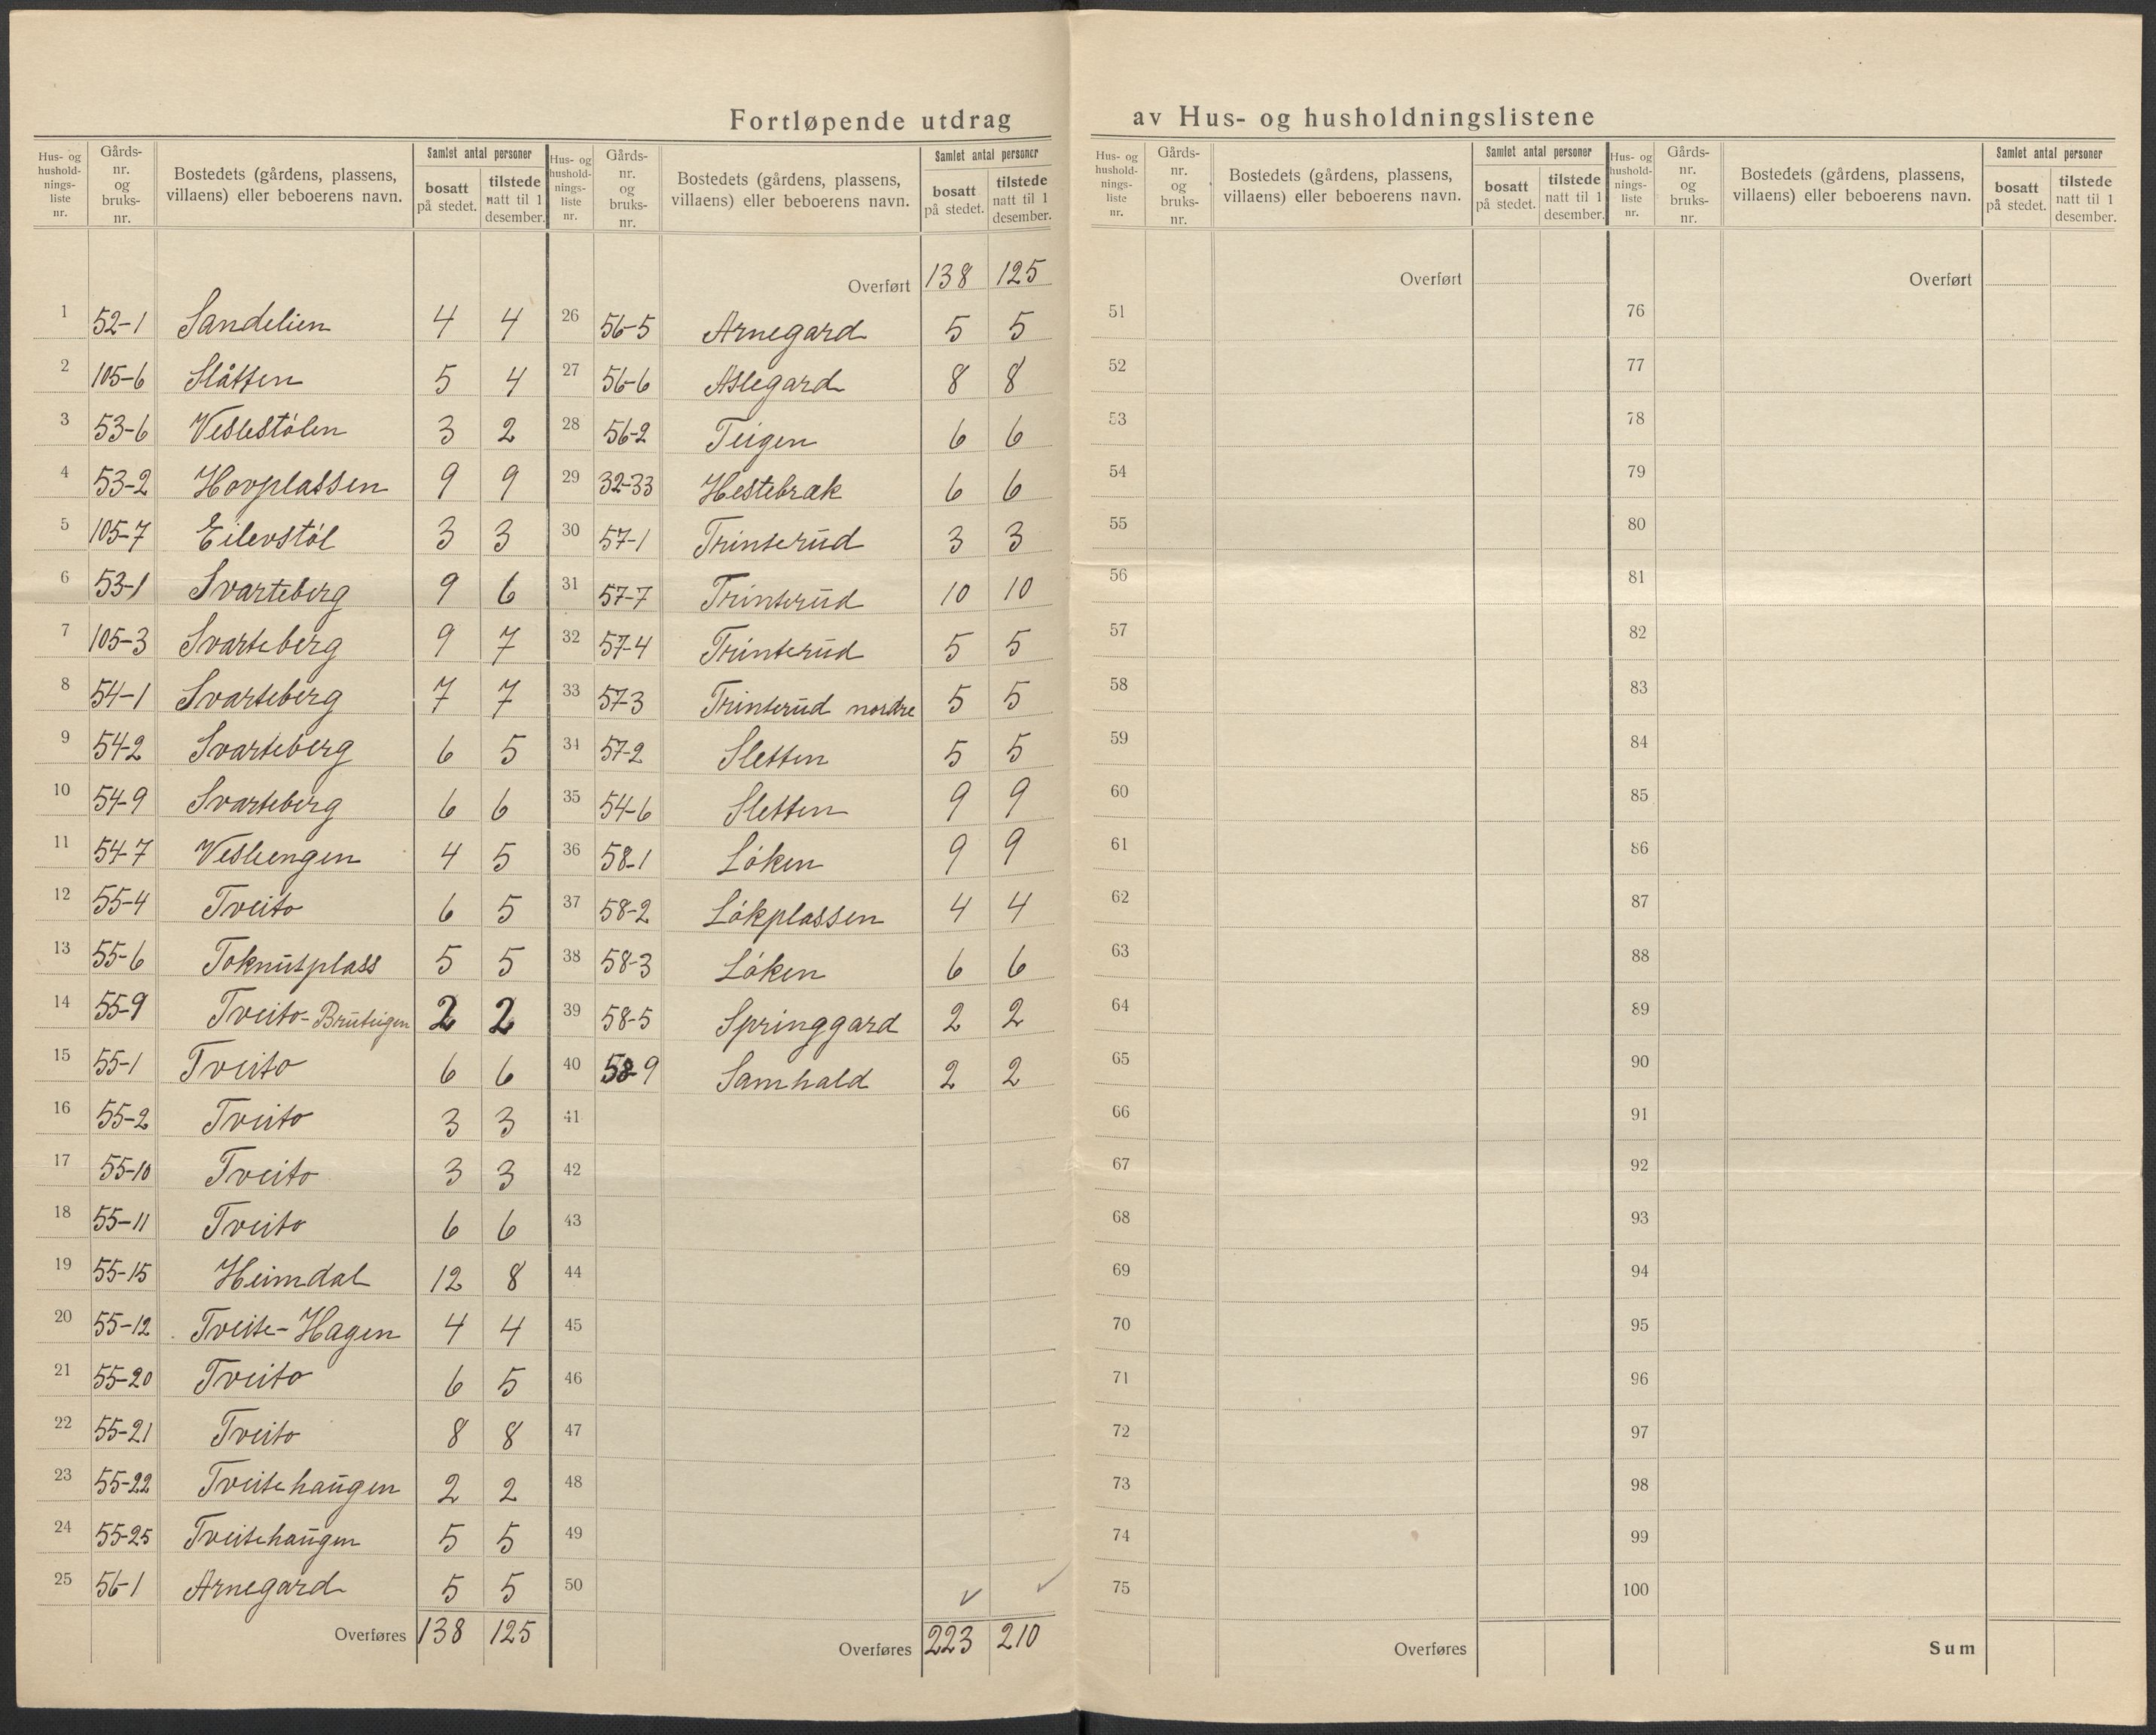 Fortløpende utdrag av Hus- og husholdningslistene
Hus- og hushold-nings-liste nr. | Gårds-nr. og bruks-nr. | Bostedets (gårdens, plassens, villaens) eller beboerens navn. | Samlet antal personer | bosatt på stedet. | tilstede natt til 1 desember.
1 52-1 Sandelien 4 4
2 105-6 Slåtten 5 4
3 53-6 Veslestölen 3 2
4 53-2 Hovplassen 9 9
5 105-7 Eilevstöl 3 3
6 53-1 Svarteberg 9 6
7 105-3 Svarteberg 9 7
8 54-1 Svarteberg 7 7
9 54-2 Svarteberg 6 5
10 54-9 Svarteberg 6 6
11 54-7 Vesleengen 4 5
12 55-4 Tveito 6 5
13 55-6 Toknutplass 5 5
14 55-9 Tveito-Bruteigen 2 2
15 55-1 Tveito 6 6
16 55-2 Tveito 3 3
17 55-10 Tveito 3 3
18 55-11 Tveito 6 6
19 55-15 Heimdal 12 8
20 55-12 Tveite-Hagen 4 4
21 55-20 Tveito 6 5
22 55-21 Tveito 8 8
23 55-22 Tveitehaugen 2 2
24 55-25 Tveitehaugen 5 5
25 56-1 Arnegard 5 5
Overføres 138 125
Hus- og hushold-nings-liste nr. | Gårds-nr. og bruks-nr. | Bostedets (gårdens, plassens, villaens) eller beboerens navn. | Samlet antal personer | bosatt på stedet. | tilstede natt til 1 desember.
Overført 138 125
26 56-5 Arnegard 5 5
27 56-6 Aslegard 8 8
28 56-2 Teigen 6 6
29 32-33 Hestebrak 6 6
30 57-1 Trinterud 3 3
31 57-7 Trinterud 10 10
32 57-4 Trinterud 5 5
33 57-3 Trinterud nordre 5 5
34 57-2 Sletten 5 5
35 54-6 Sletten 9 9
36 58-1 Löken 9 9
37 58-2 Lökplassen 4 4
38 58-3 Löken 6 6
39 58-5 Springgard 2 2
40 58-9 Samhald 2 2
41
42
43
44
45
46
47
48
49
50 ✓ ✓
Overføres 223 210
Hus- og hushold-nings-liste nr. | Gårds-nr. og bruks-nr. | Bostedets (gårdens, plassens, villaens) eller beboerens navn. | Samlet antal personer | bosatt på stedet. | tilstede natt til 1 desember.
Overført
51
52
53
54
55
56
57
58
59
60
61
62
63
64
65
66
67
68
69
70
71
72
73
74
75
Overføres
Hus- og hushold-nings-liste nr. | Gårds-nr. og bruks-nr. | Bostedets (gårdens, plassens, villaens) eller beboerens navn. | Samlet antal personer | bosatt på stedet. | tilstede natt til 1 desember.
Overført
76
77
78
79
80
81
82
83
84
85
86
87
88
89
90
91
92
93
94
95
96
97
98
99
100
Sum